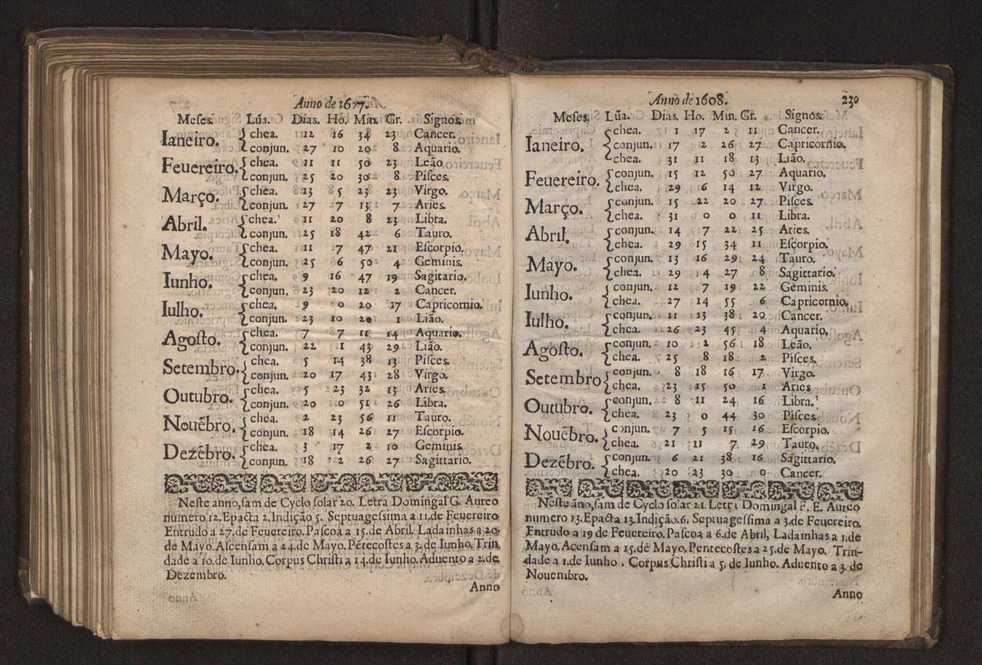 Anno de 1607.
Meses. Lũa. Dias. Ho. Min. Gr. Signos.
Ianeiro. chea. 12 16 34 23 Cancer.
conjun. 27 10 20 8 Aquario.
Feuereiro. chea. 11 11 50 23 Leão
conjun. 25 20 30 8 Pisces.
Março. chea. 13 5 23 23 Virgo.
conjun. 27 7 13 7 Aries.
Abril. chea. 11 20 8 23 Libra.
conjun. 25 18 42 6 Tauro.
Mayo. chea. 11 7 47 21 Escorpio.
conjun. 25 6 50 4 Geminis.
Iunho. chea. 9 16 47 19 Sagitario.
conjun. 23 20 12 2 Cancer.
Iulho. chea. 9 0 20 17 Capricornio.
conjun. 23 10 20 1 Lião.
Agosto. chea. 7 7 11 14 Aquario.
conjun. 22 1 43 29 Lião.
Setembro. chea. 5 14 38 13 Pisces.
conjun. 20 17 43 28 Virgo.
Outubro. chea. 5 23 32 13 Aries.
conjun. 20 0 51 26 Libra.
Nouẽbro. chea. 2 23 56 11 Tauro.
conjun. 18 14 26 27 Escorpio.
Dezẽbro. chea. 3 17 2 10 Geminis.
conjun. 18 2 26 27 Sagittario.
Neste anno, sam de Cyclo solar 20. Letra Domingal G. Aureo
numero 12. Epacta 2. Indição 5. Septuagessima a 11. de Feuereiro
Entrudo a 27. de Feuereiro. Pascoa a 15. de Abril. Ladainhas a 20.
de Mayo. Ascensam a 24. de Mayo. Pẽtecostes a 3. de Iunho. Trin
dade a 10. de Iunho. Corpus Christi a 14. de Iunho. Aduento a 2. de
Dezembro.
Anno
Anno de 1608. 230
Meses. Lũa. Dias. Ho. Min. Gr. Signos.
Ianeiro. chea. 1 17 2 11 Cancer.
conjun. 17 2 26 27 Capricornio.
chea. 31 11 18 13 Lião.
Feuereiro. conjun. 15 12 50 27 Aquario.
chea. 29 6 14 12 Virgo.
Março. conjun. 15 22 20 27 Pisces.
chea. 31 0 0 11 Libra.
Abril. conjun. 14 7 22 25 Aries.
chea. 29 15 34 11 Escorpio.
Mayo. conjun. 13 16 29 24 Tauro.
chea. 29 4 27 8 Sagittario.
Iunho. conjun. 12 7 19 22 Geminis.
chea. 27 14 55 6 Capricornio.
Iulho. conjun. 11 13 38 20 Cancer.
chea. 26 23 45 4 Aquario.
Agosto. conjun. 10 2 56 18 Leão.
chea. 25 8 18 2 Pisces.
Setembro conjun. 8 18 16 17 Virgo.
chea. 23 15 50 1 Aries
Outubro. conjun. 8 11 24 16 Libra.
chea. 23 0 44 30 Pisces.
Nouẽbro. conjun. 7 5 15 16 Escorpio.
chea. 21 11 7 29 Tauro.
Dezẽbro. conjun. 6 21 38 16 Sagittario.
chea. 20 23 30 0 Cancer.
Neste anno, sam de Cyclo solar 21. Letra Domingal F. E. Aureo
numero 13. Epacta 13. Indição 6. Septuagessima a 3. de Feuereiro.
Entrudo a 19 de Feuereiro. Pascoa a 6. de Abril, Ladainhas a 1. de
Mayo. Acensam a 15. de Mayo. Pentecostes a 25. de Mayo. Trin-
dade a 1. de Iunho. Corpus Christi a 5. de Iunho. Aduento a 3. de
Nouembro.
Anno